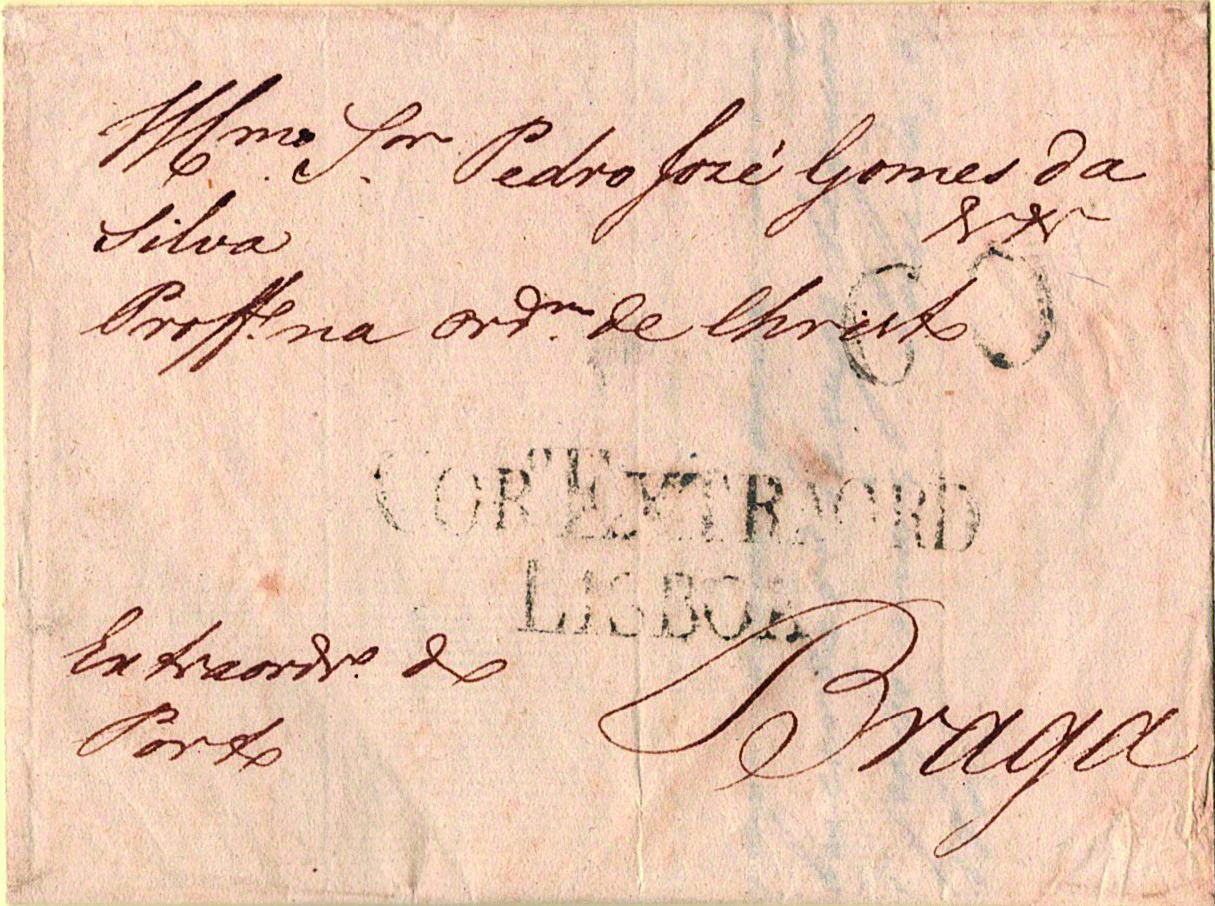 Illmo. Snr. Pedro José Gomes da
Silva
Proffo. na ordm. de Christo
60
COR.º EXTRAORD
LISBOA
Extraordro. do
Porto
Braga